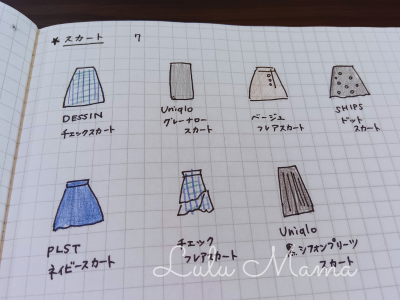 ★ スカート 7
DESSIN
チェックスカート
Uniqlo
グレーナロー
スカート
ベージュ
フレアスカート
SHIPS
ドット
スカート
PLST
ネイビースカート
チェック
フレアスカート
Uniqlo
シフォンプリーツ
スカート
Lulu Mama